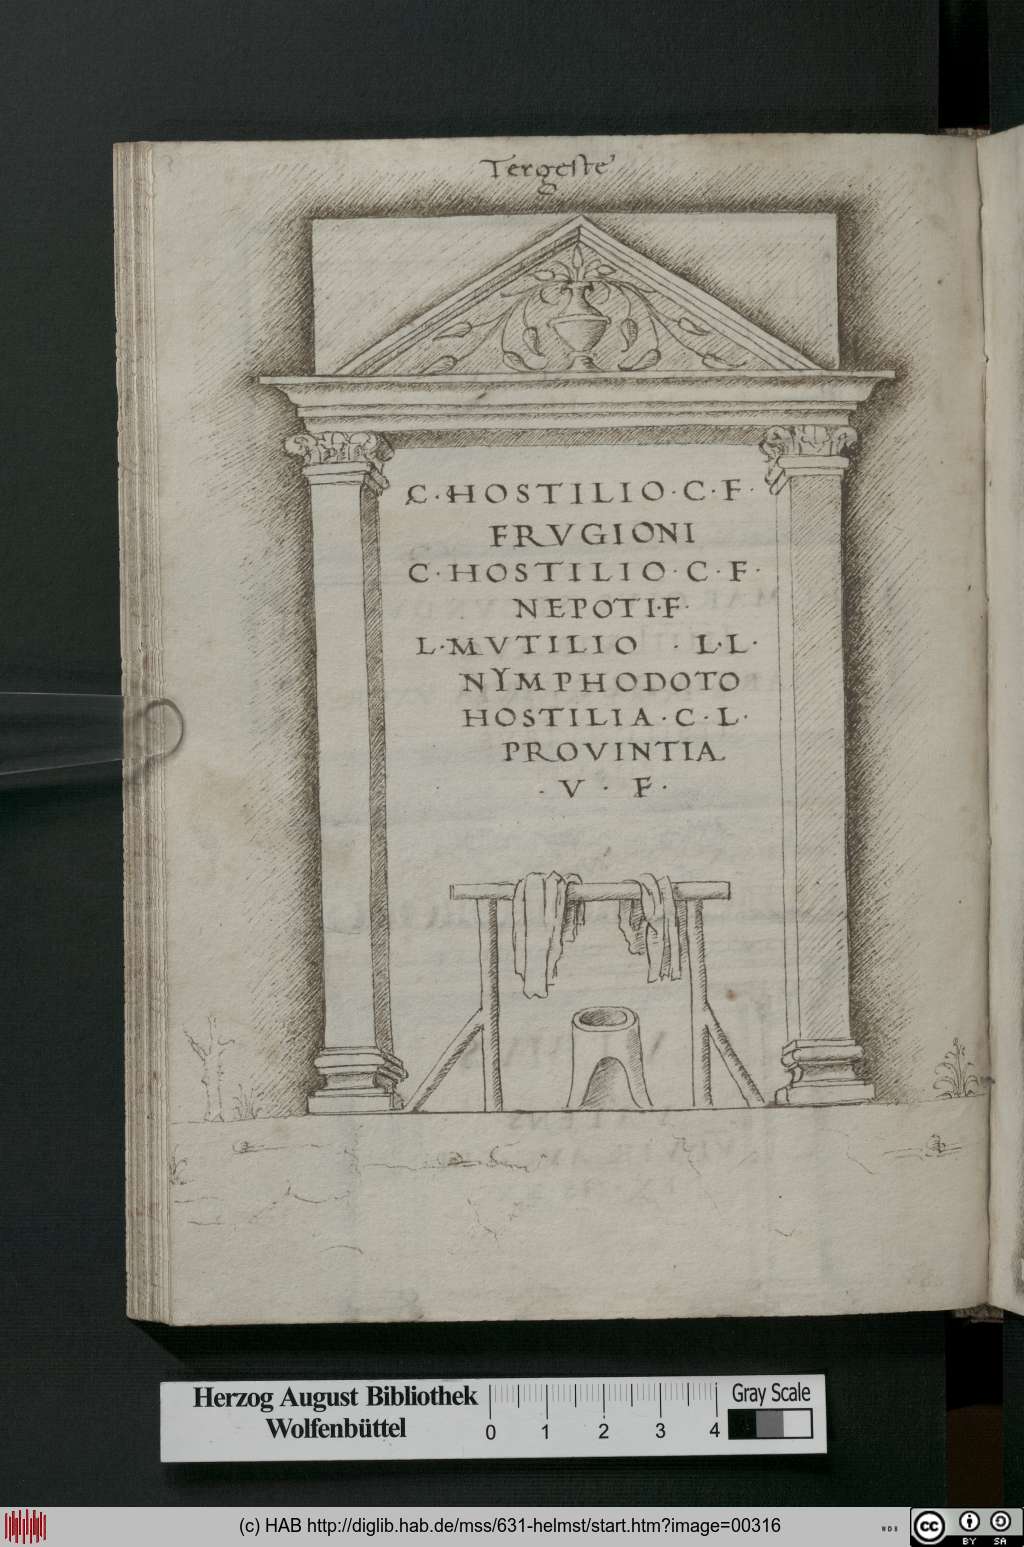 Tergeste
C·HOSTILIO·C·F·
FRVGIONI
C·HOSTILIO·C·F·
NEPOTI·F·
L·MVTILIO · L·L·
NYMPHODOTO
HOSTILIA·C·L·
PROVINTIA
·V·F·
Herzog August Bibliothek
Wolfenbüttel
0 1 2 3 4
Gray Scale
(c) HAB http://diglib.hab.de/mss/631-helmst/start.htm?image=00316
WDB
cc BY SA